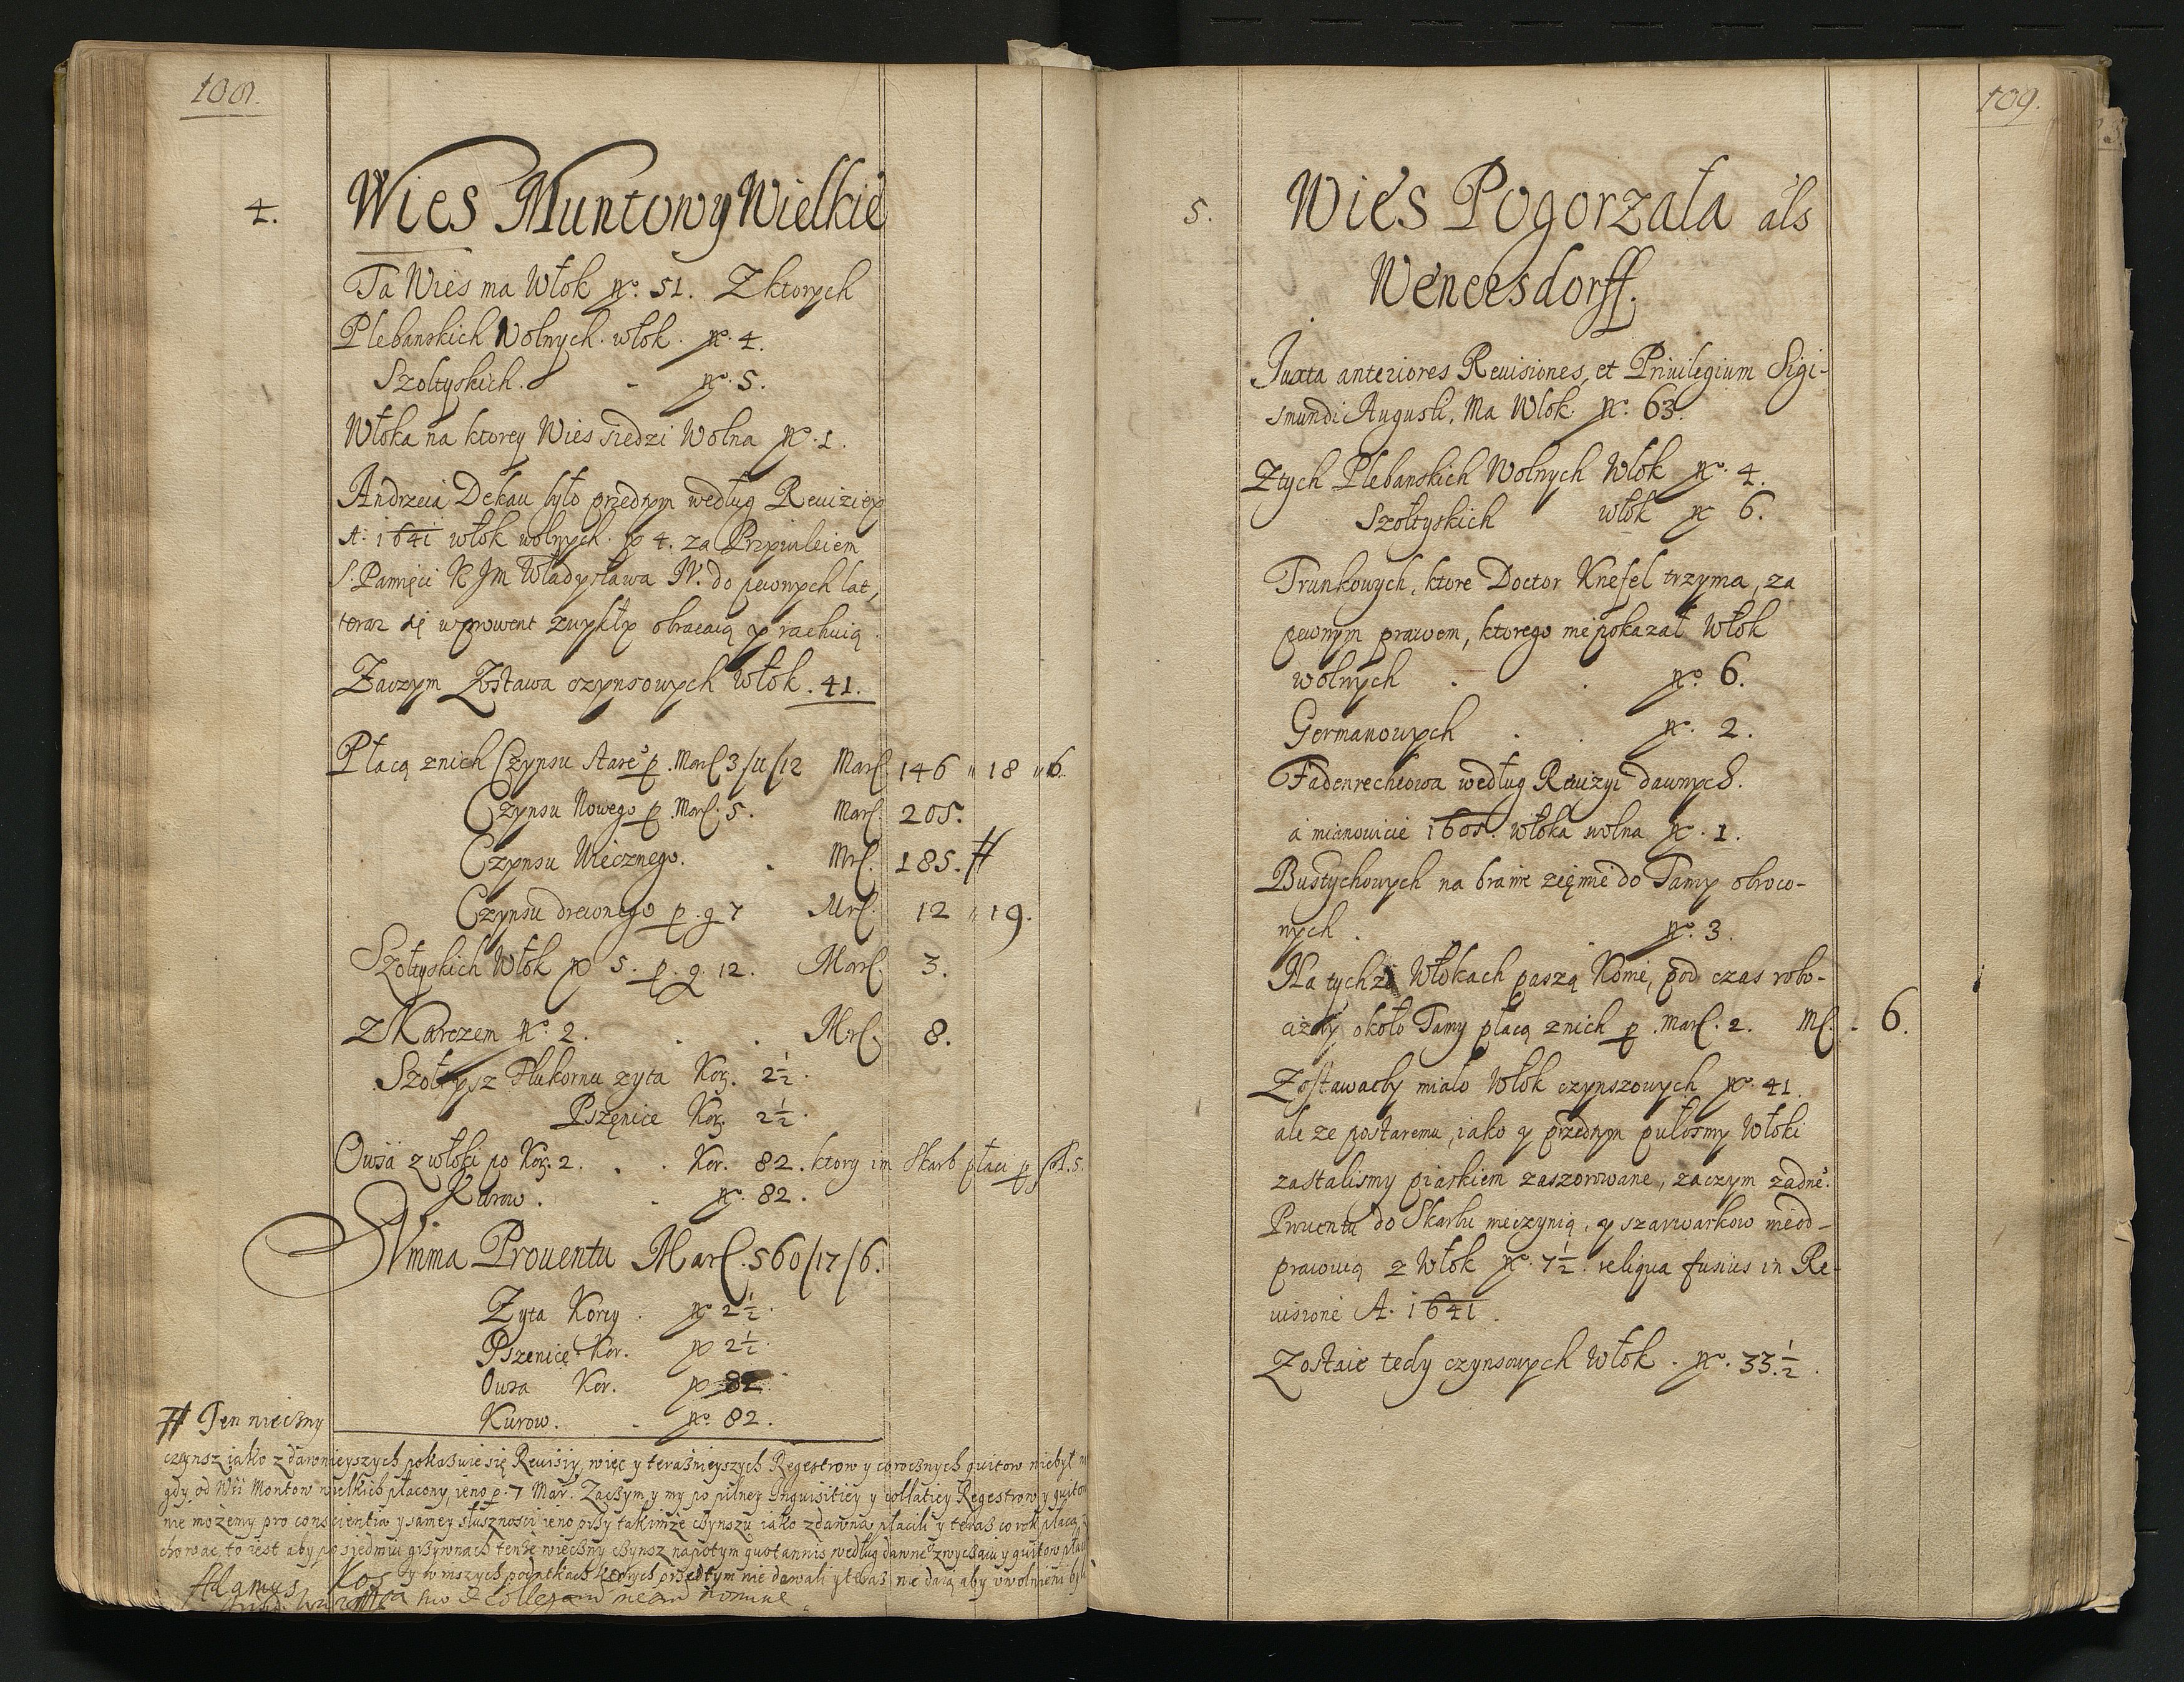 108.
4.
Wies Muntowy Wielkie
Ta Wies ma Włok No. 51. Z ktorych
Plebanskich Wolnych. włok. No. 4.
Szoltyskich. - No. 5.
Włoka na ktorey Wies siedzi Wolna No. 1.
Andrzeia Dekau było przedtym według Reuiziey
A. 1641 włok wolnych. No 4. za Przywileiem
S. Pamięci K Jm Władysława IV. do pewnych lat,
teraz się w prowent zwykły obracaią y rachuią.
Zaczym Zostawa czynsowych Włok. 41.
Płacą z nich Czynsu stare° p. Marc 3/11/12 Marc. 146 " 18 " 6.
Czynsu Nowego p. Marc. 5. Marc. 205.
Czynsu Wiecznego. . Mrc. 185. #
Czynsu drewnego p. g 7 Mrc. 12 " 19.
Szołtyskich Włok No 5. p. g. 12. Marc. 3.
Z Karczem No. 2. . . Mrc. 8.
Szołtysz Płukornu zyta Kor. 2½.
Pszęnice Kor. 2½.
Owsa z włoki po Kor. 2. . . Kor. 82. ktory im Skarb płaci p fl. 5.
Kurow. . No. 82.
Summa Prouentu Marc. 560/17/6.
Zyta Korcy. No 2½.
Pszenicę. Kor. No 2½.
Owsa Kor. No 82.
Kurow. - No. 82.
# Ten wieczny
czynsz iako z dawnieyszych pokazuie się Reuisiy, więc y teraznieyszych Regestrow y corocznych quitow niebył ni
gdy od Wsi Montow wielkich płacony, ieno p. 7 Mar. Zaczym y my po pilney inquisitiey y collatiey Regestrow y quitow
nie możemy pro conscientia y samey słuszności ieno przy takimże czynszu iako z dawna płacili y teraz co rok płacą, za
chować, to iest aby po siedmiu grzywnach tenże wieczny czynsz napotym quotannis według dawne° zwyczaiu y quitow płaci
y w inszych podatkach ktorych przedtym nie dawali y teraz nie daią aby uwolnieni byli
Adamus Kos
suo & collegarum nomine
109.
5.
Wies Pogorzała als
Wencesdorff.
Juxta anteriores Reuisiones, et Priuilegium Sigi-
smundi Augusti, Ma Włok No. 63.
Z tych Plebanskich Wolnych Włok No. 4.
Szołtyskich włok No 6.
Trunkowych, ktore Doctor Knefel trzyma, za
pewnym prawem, ktorego nie pokazał Włok
wolnych . . No. 6.
Germanowych . . No. 2.
Fadenrechtowa według Reuizyi dawnych.
a mianowicie 1605. włoka wolna No. 1.
Bustychowych na branie ziemie do Tamy obroco-
nych . . No. 3.
Na tychże Włokach paszą Konie, pod czas robo-
cizny około Tamy płacą z nich p. Marc. 2. Mc. - 6.
Zostawacby miało Włok czynszowych No. 41.
ale ze postaremu, iako y przedtym pułosmy Włoki
zastalismy piaskiem zaszorowane, zaczym zadne°.
Prouentu do Skarbu nieczynią, y szarwarkow nieod-
prawuią z Włok No. 7½. reliqua fusius in Re-
uisione A. 1641.
Zostaie tedy czynsowych Włok. No. 33.½.